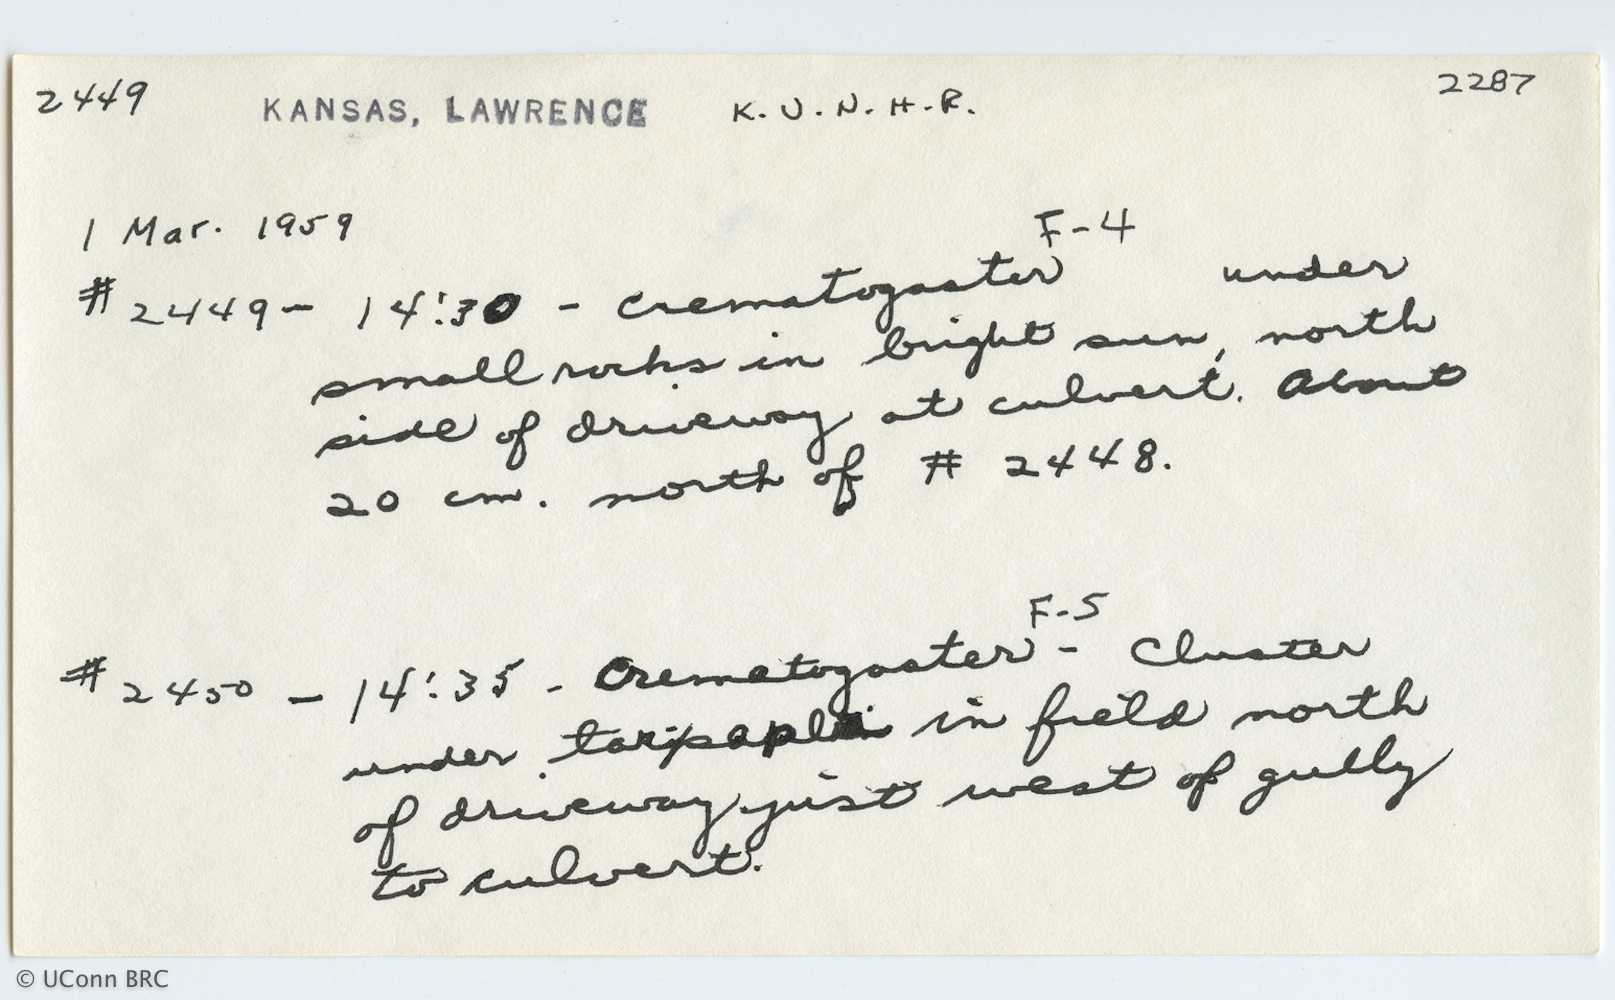 2449 KANSAS, LAWRENCE K. U. N. H. R. 2287
1 Mar. 1959
F-4
# 2449 - 14:30 - Crematogaster under
small rocks in bright sun, north
side of driveway at culvert. About
20 cm. north of # 2448.
F-5
# 2450 - 14:35 - Crematogaster - Cluster
under in field north
of driveway just west of gully
to culvert.
© UConn BRC